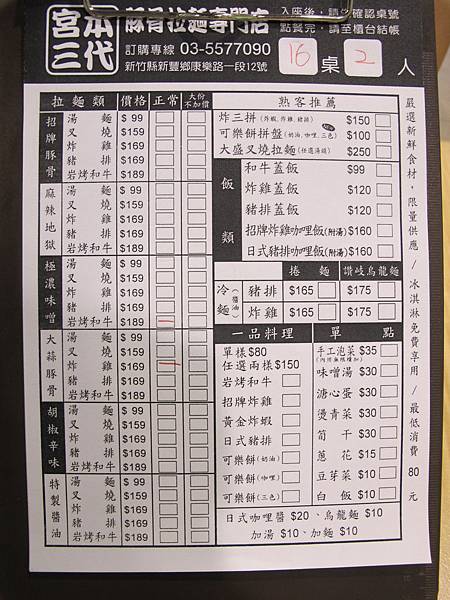 宮本三代
豚骨拉麵專門店
訂購專線 03-5577090
新竹縣新豐鄉康樂路一段12號
入座後，請確認桌號
點餐完，請至櫃台結帳
16 桌 2 人
拉麵類 價格 正常 大份不加價
招牌豚骨
湯麵 $99
叉燒 $159
炸雞 $169
豬排 $169
岩烤和牛 $189
麻辣地獄
湯麵 $99
叉燒 $159
炸雞 $169
豬排 $169
岩烤和牛 $189
極濃味噌
湯麵 $99
叉燒 $159
炸雞 $169
豬排 $169
岩烤和牛 $189
大蒜豚骨
湯麵 $99
叉燒 $159
炸雞 $169
豬排 $169
岩烤和牛 $189
胡椒辛味
湯麵 $99
叉燒 $159
炸雞 $169
豬排 $169
岩烤和牛 $189
特製醬油
湯麵 $99
叉燒 $159
炸雞 $169
豬排 $169
岩烤和牛 $189
熟客推薦
炸三拼(炸蝦,炸雞,豬排) $150
可樂餅拼盤(奶油,咖哩,三色) $100
大盛叉燒拉麵(任選湯頭) $250
飯類
和牛蓋飯 $99
炸雞蓋飯 $120
豬排蓋飯 $120
招牌炸雞咖哩飯(附湯) $160
日式豬排咖哩飯(附湯) $160
冷麵(醬油)
捲麵 讚岐烏龍麵
豬排 $165 $175
炸雞 $165 $175
一品料理
單樣$80
任選兩樣$150
岩烤和牛
招牌炸雞
黃金炸蝦
日式豬排
可樂餅(奶油)
可樂餅(咖哩)
可樂餅(三色)
單點
手工泡菜 $35
(內用無限續加)
味噌湯 $30
溏心蛋 $30
燙青菜 $30
筍干 $30
蔥花 $15
豆芽菜 $10
白飯 $10
日式咖哩醬 $20、烏龍麵 $10
加湯 $10、加麵 $10
嚴選新鮮食材，限量供應 / 冰淇淋免費享用 / 最低消費80元